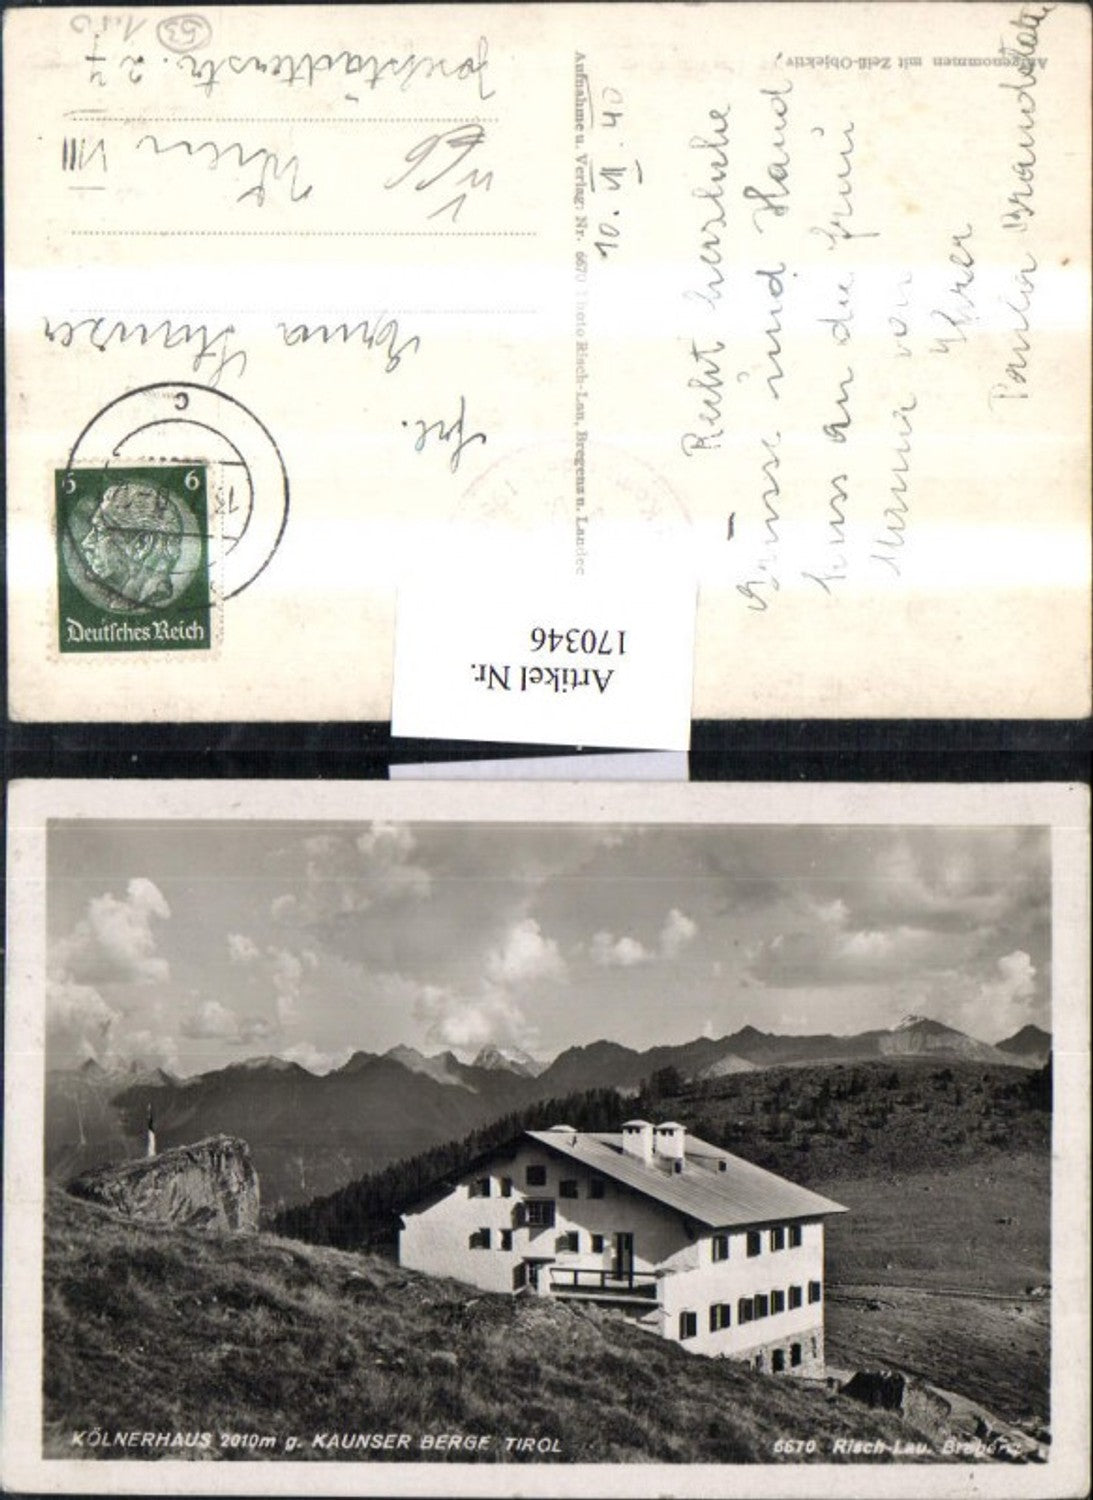 Aufgenommen mit Zeiß-Objektiv,
10. VII. 40
Recht herzliche
Grüsse und Hand
kuss an die Frau
Mama von
Ihrer
Paula
Aufnahme u. Verlag: Nr. 6670 Photo Risch-Lau, Bregenz u. Landeck
Frl.
Erna
Wien VIII
Josefstädterstr. 27
53
6 6
Deutsches Reich
c
Artikel Nr.
170346
KÖLNERHAUS 2010m g. KAUNSER BERGE TIROL
6670 Risch-Lau. Bregenz